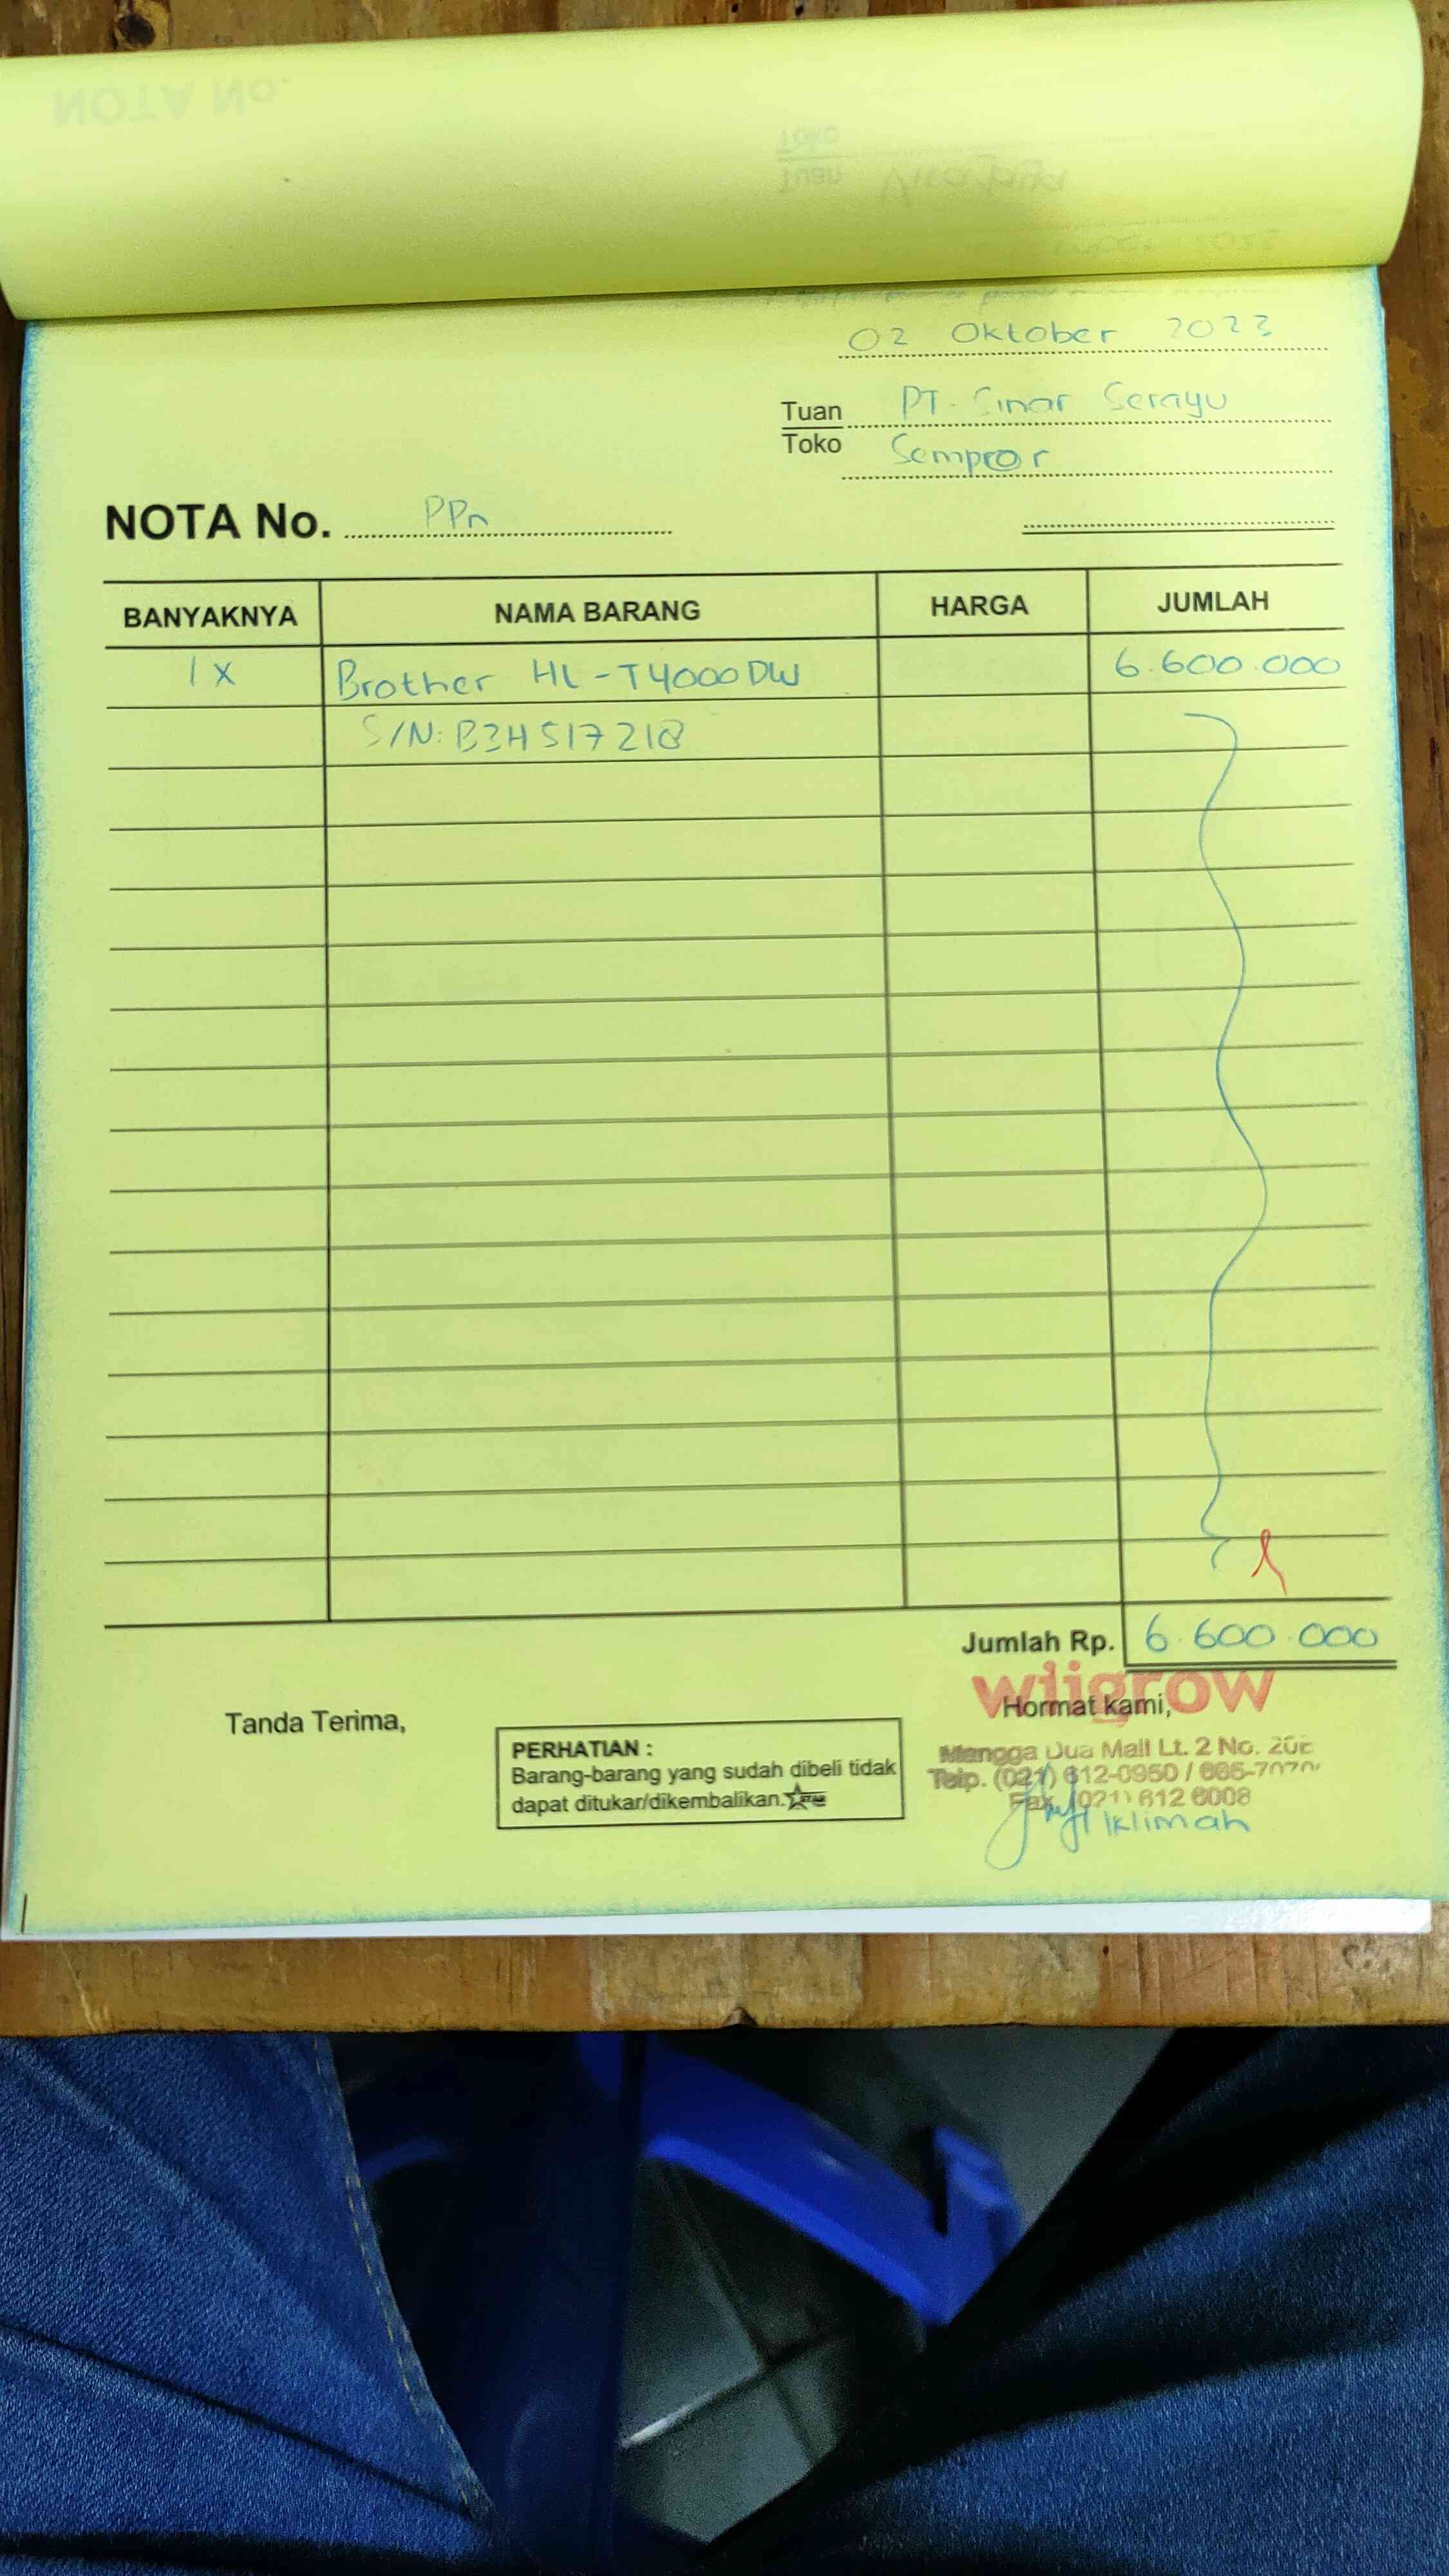 NOTA No.
Toko
Tuan
02 Oktober 2023
Tuan PT. Sinar Serayu
Toko Sempor
NOTA No. PPn
BANYAKNYA NAMA BARANG HARGA JUMLAH
1 X Brother HL-T4000DW 6.600.000
S/N: B3H517218
Jumlah Rp. 6.600.000
wiigrow
Tanda Terima,
Hormat kami,
PERHATIAN :
Barang-barang yang sudah dibeli tidak
dapat ditukar/dikembalikan.
Mangga Dua Mall Lt. 2 No. 20E
Telp. (021) 612-0950 /
Fax. (021) 612 6008
Iklimah